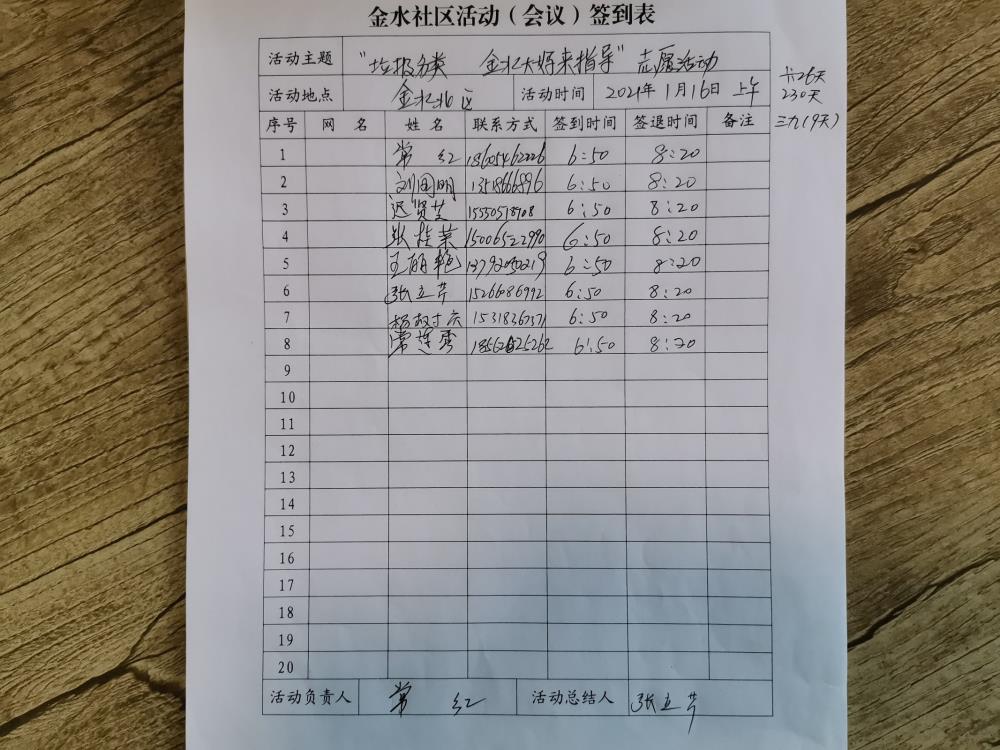 金水社区活动（会议）签到表
活动主题 “垃圾分类 金水大好来指导”志愿活动
活动地点 金水北区 活动时间 2021年1月16日 上午
26天
230天
三九(9天)
序号 网 名 姓 名 联系方式 签到时间 签退时间 备注
1 常 红 18605462226 6:50 8:20
2 刘国明 6:50 8:20
3 迟贤芝 6:50 8:20
4 张桂荣 15006522990 6:50 8:20
5 王丽艳 6:50 8:20
6 张立芹 15266086992 6:50 8:20
7 杨树兰 15318367371 6:50 8:20
8 常莲秀 6:50 8:20
9
10
11
12
13
14
15
16
17
18
19
20
活动负责人 常 红 活动总结人 张立芹